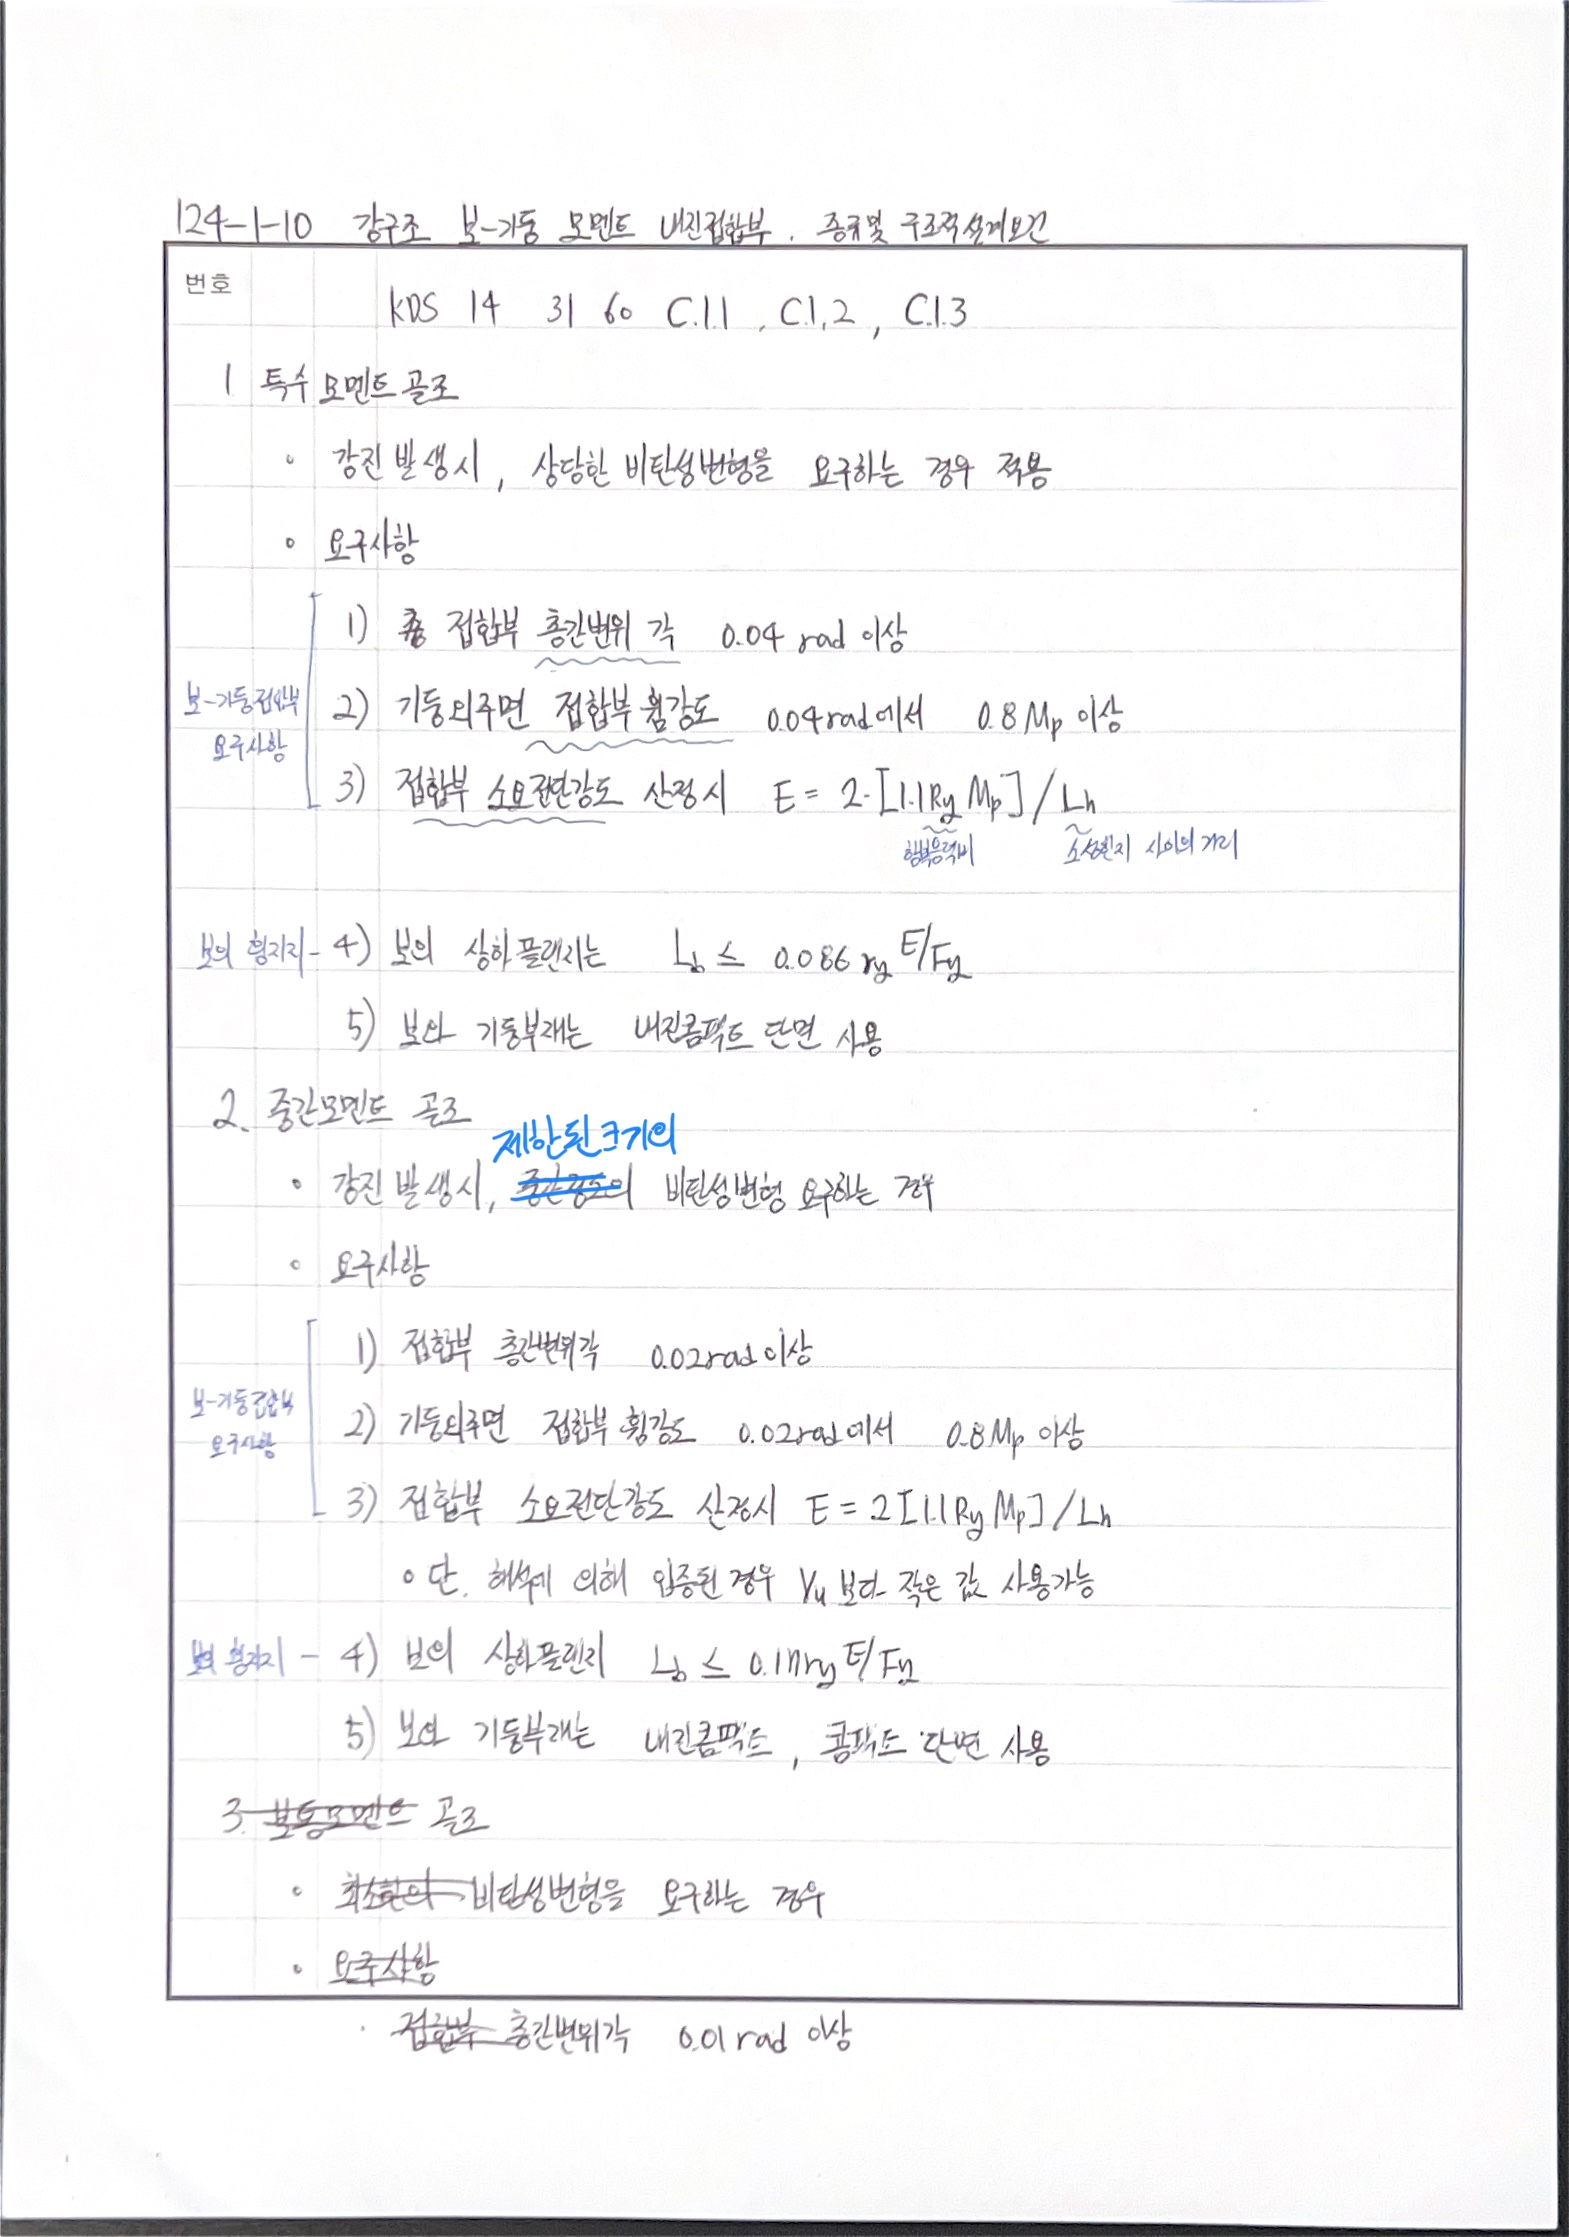 124-1-10 강구조 보-기둥 모멘트 내진접합부. 종류및 구조적설계요건
번호
KDS 14 31 60 C.1.1, C.1.2, C.1.3
1 특수모멘트골조
◦ 강진발생시, 상당한 비탄성변형을 요구하는 경우 적용
◦ 요구사항
1) 접합부 층간변위 각 0.04 rad 이상
보-기둥접합부
요구사항
2) 기둥외주면 접합부휨강도 0.04rad에서 0.8Mp 이상
3) 접합부 소요전단강도 산정시 E = 2·[1.1RyMp]/Lh
항복응력비 소성힌지 사이의 거리
보의 횡지지 - 4) 보의 상하플랜지는 Lb ≤ 0.086 ry E/Fy
5) 보와 기둥부재는 내진콤팩트 단면 사용
2. 중간모멘트 골조
제한된크기의
• 강진발생시, 중간정도의 비탄성변형 요구하는 경우
◦ 요구사항
1) 접합부 층간변위각 0.02rad이상
보-기둥접합부
요구사항
2) 기둥외주면 접합부휨강도 0.02rad에서 0.8Mp 이상
3) 접합부 소요전단강도 산정시 E = 2[1.1RyMp]/Lh
◦ 단, 해석에 의해 입증된경우 Vu보다 작은 값 사용가능
보의 횡지지 - 4) 보의 상하플랜지 Lb ≤ 0.17ry E/Fy
5) 보와 기둥부재는 내진콤팩트, 콤팩트 단면 사용
3. 보통모멘트 골조
◦ 최소한의 비탄성변형을 요구하는 경우
• 요구사항
· 접합부 층간변위각 0.01rad 이상